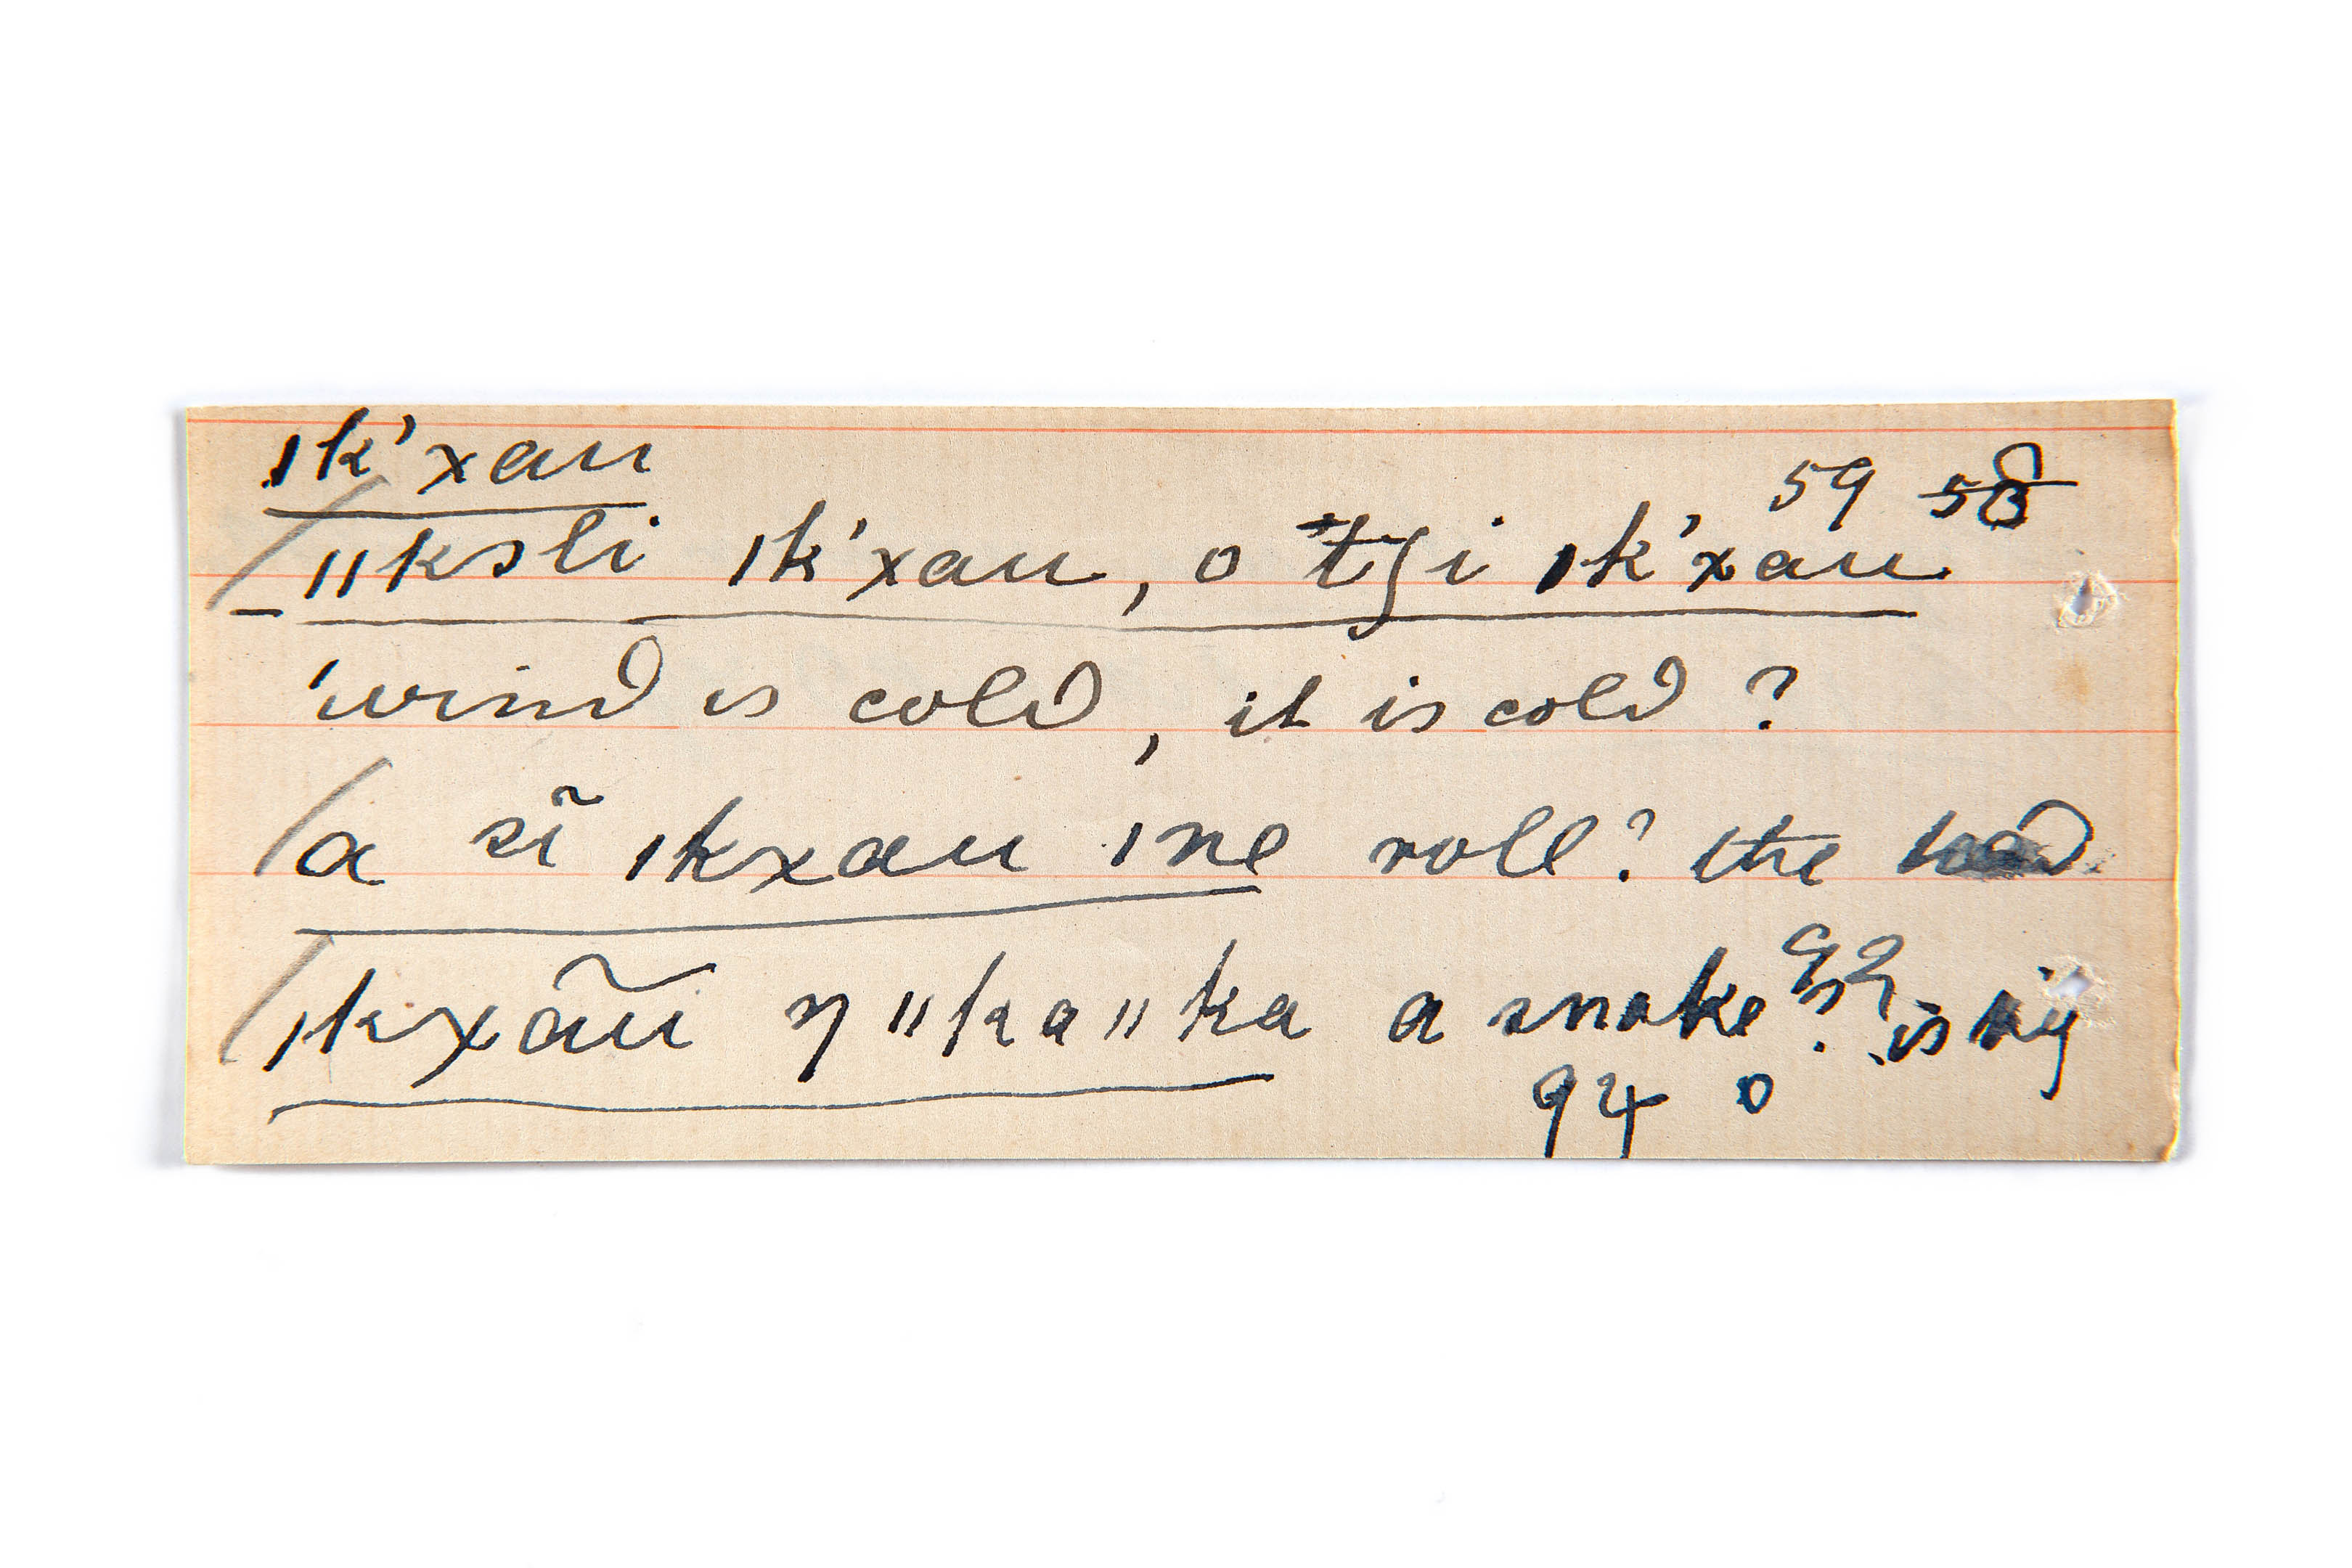 ǀk'xau
59 58
ǁksli ǀk'xau, o tʃi ǀk'xau
wind is cold, it is cold?
a sĩ ǀkxau ǀne roll? the
ǀkxãũ ŋ ǁkaǁka a snake? 92 is my
94 o